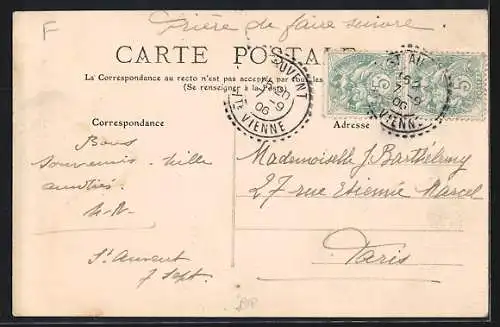 F
Prière de faire suivre
CARTE POSTALE
La Correspondance au recto n'est pas acceptée par tous les
(Se renseigner à la Poste)
UVENT
7-9
06
HTE VIENNE
ST AU
7-9
06
VIENNE
Correspondance
Adresse
Bons
souvenirs. Mille
amitiés.
St Auvent
7 Sept.
Mademoiselle J. Barthélemy
27 rue Etienne Marcel
Paris